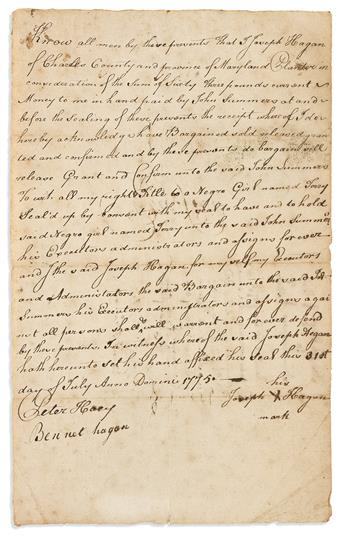 Know all men by these presents That I Joseph Hagan
of Charles County and province of Maryland Planter in
consideration of the Sum of Sixty three pounds current
Money to me in hand paid by John Summers at and
before the sealing of these presents the receipt where of I do
here by acknowledge have Bargained sold released gran
ted and confirmed and by these presents do bargain sell
release Grant and Confirm unto the said John Summers
To wit all my right & title to a Negro Girl named
Seal'd up by consent with my seal to have and to hold
said Negro girl named unto the said John Summers
his Executors administrators and assigns for ever
and I the said Joseph Hagan for my self my Executors
and Administrators the said Bargain unto the said
Summers his Executors administrators and assigns agai
nst all persons shall & will warrant and for ever defend
by these presents. In witness where of the said Joseph Hagan
hath here unto set his hand affixed his Seal this 31st
day of July Anno Domini 1775.
his
Joseph X Hagan
mark
Peter
Bennet hagan